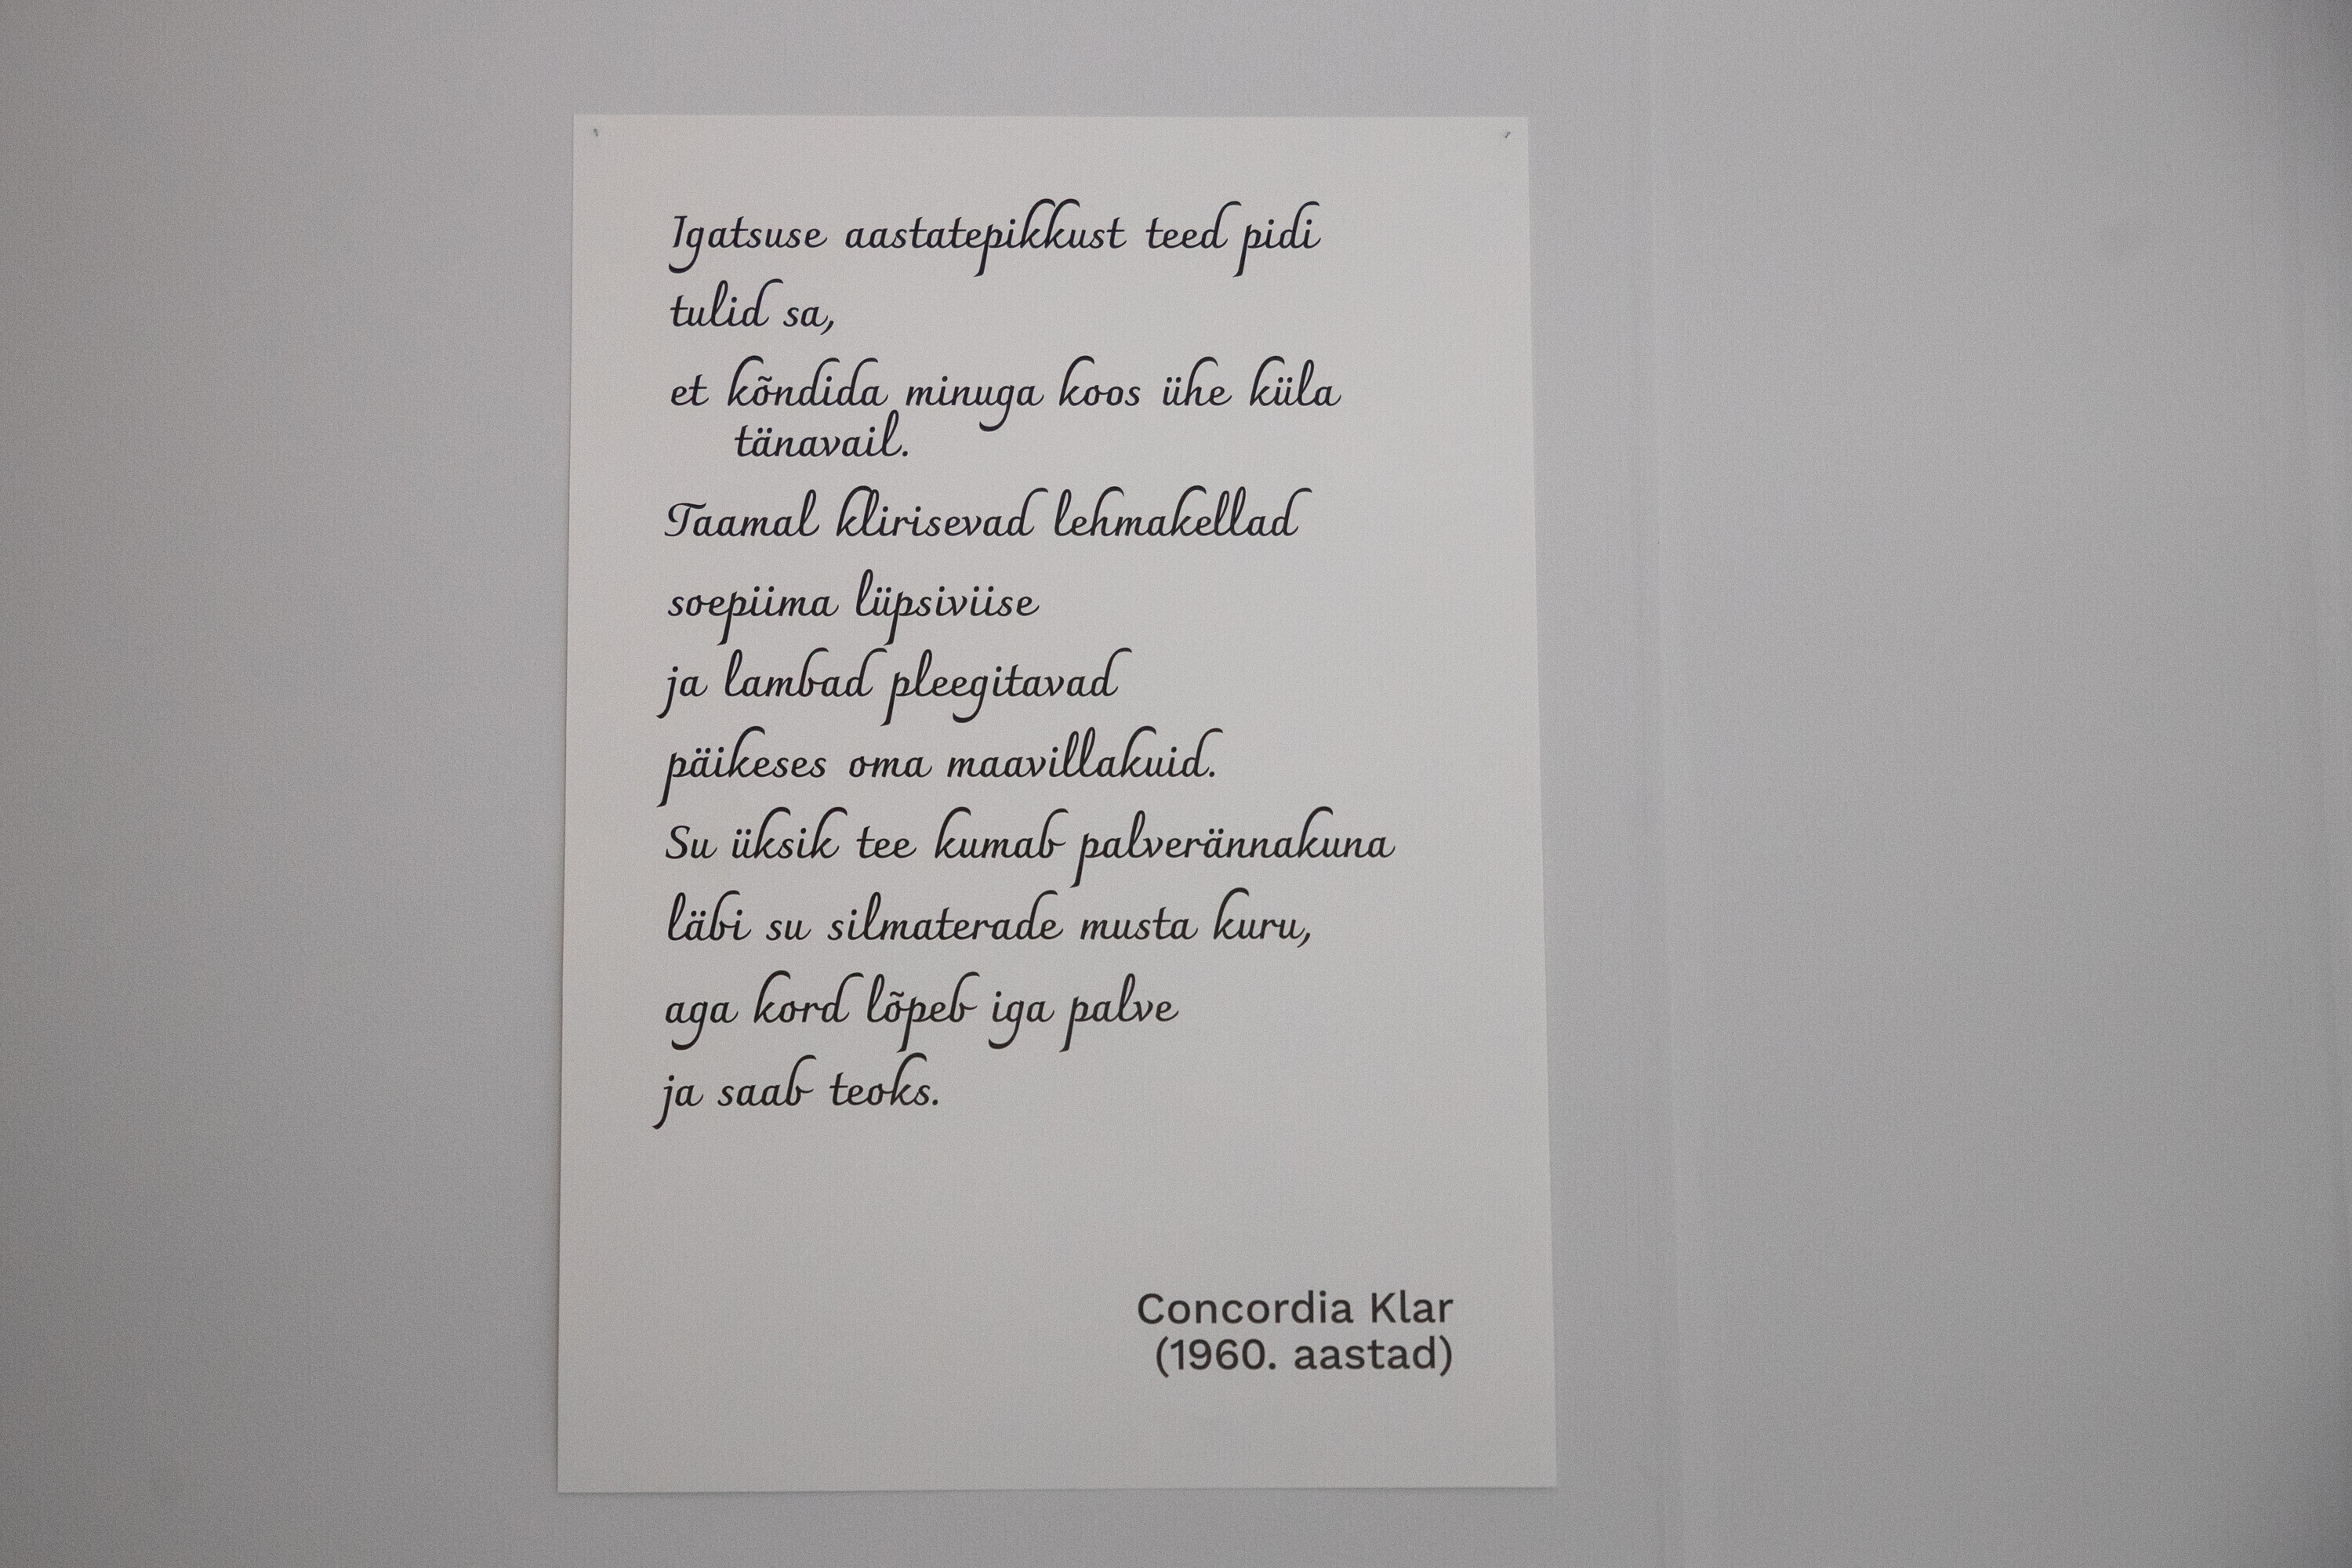 Igatsuse aastatepikkust teed pidi
tulid sa,
et kõndida minuga koos ühe küla
tänavail.
Taamal klirisevad lehmakellad
soepiima lüpsiviise
ja lambad pleegitavad
päikeses oma maavillakuid.
Su üksik tee kumab palverännakuna
läbi su silmaterade musta kuru,
aga kord lõpeb iga palve
ja saab teoks.
Concordia Klar
(1960. aastad)